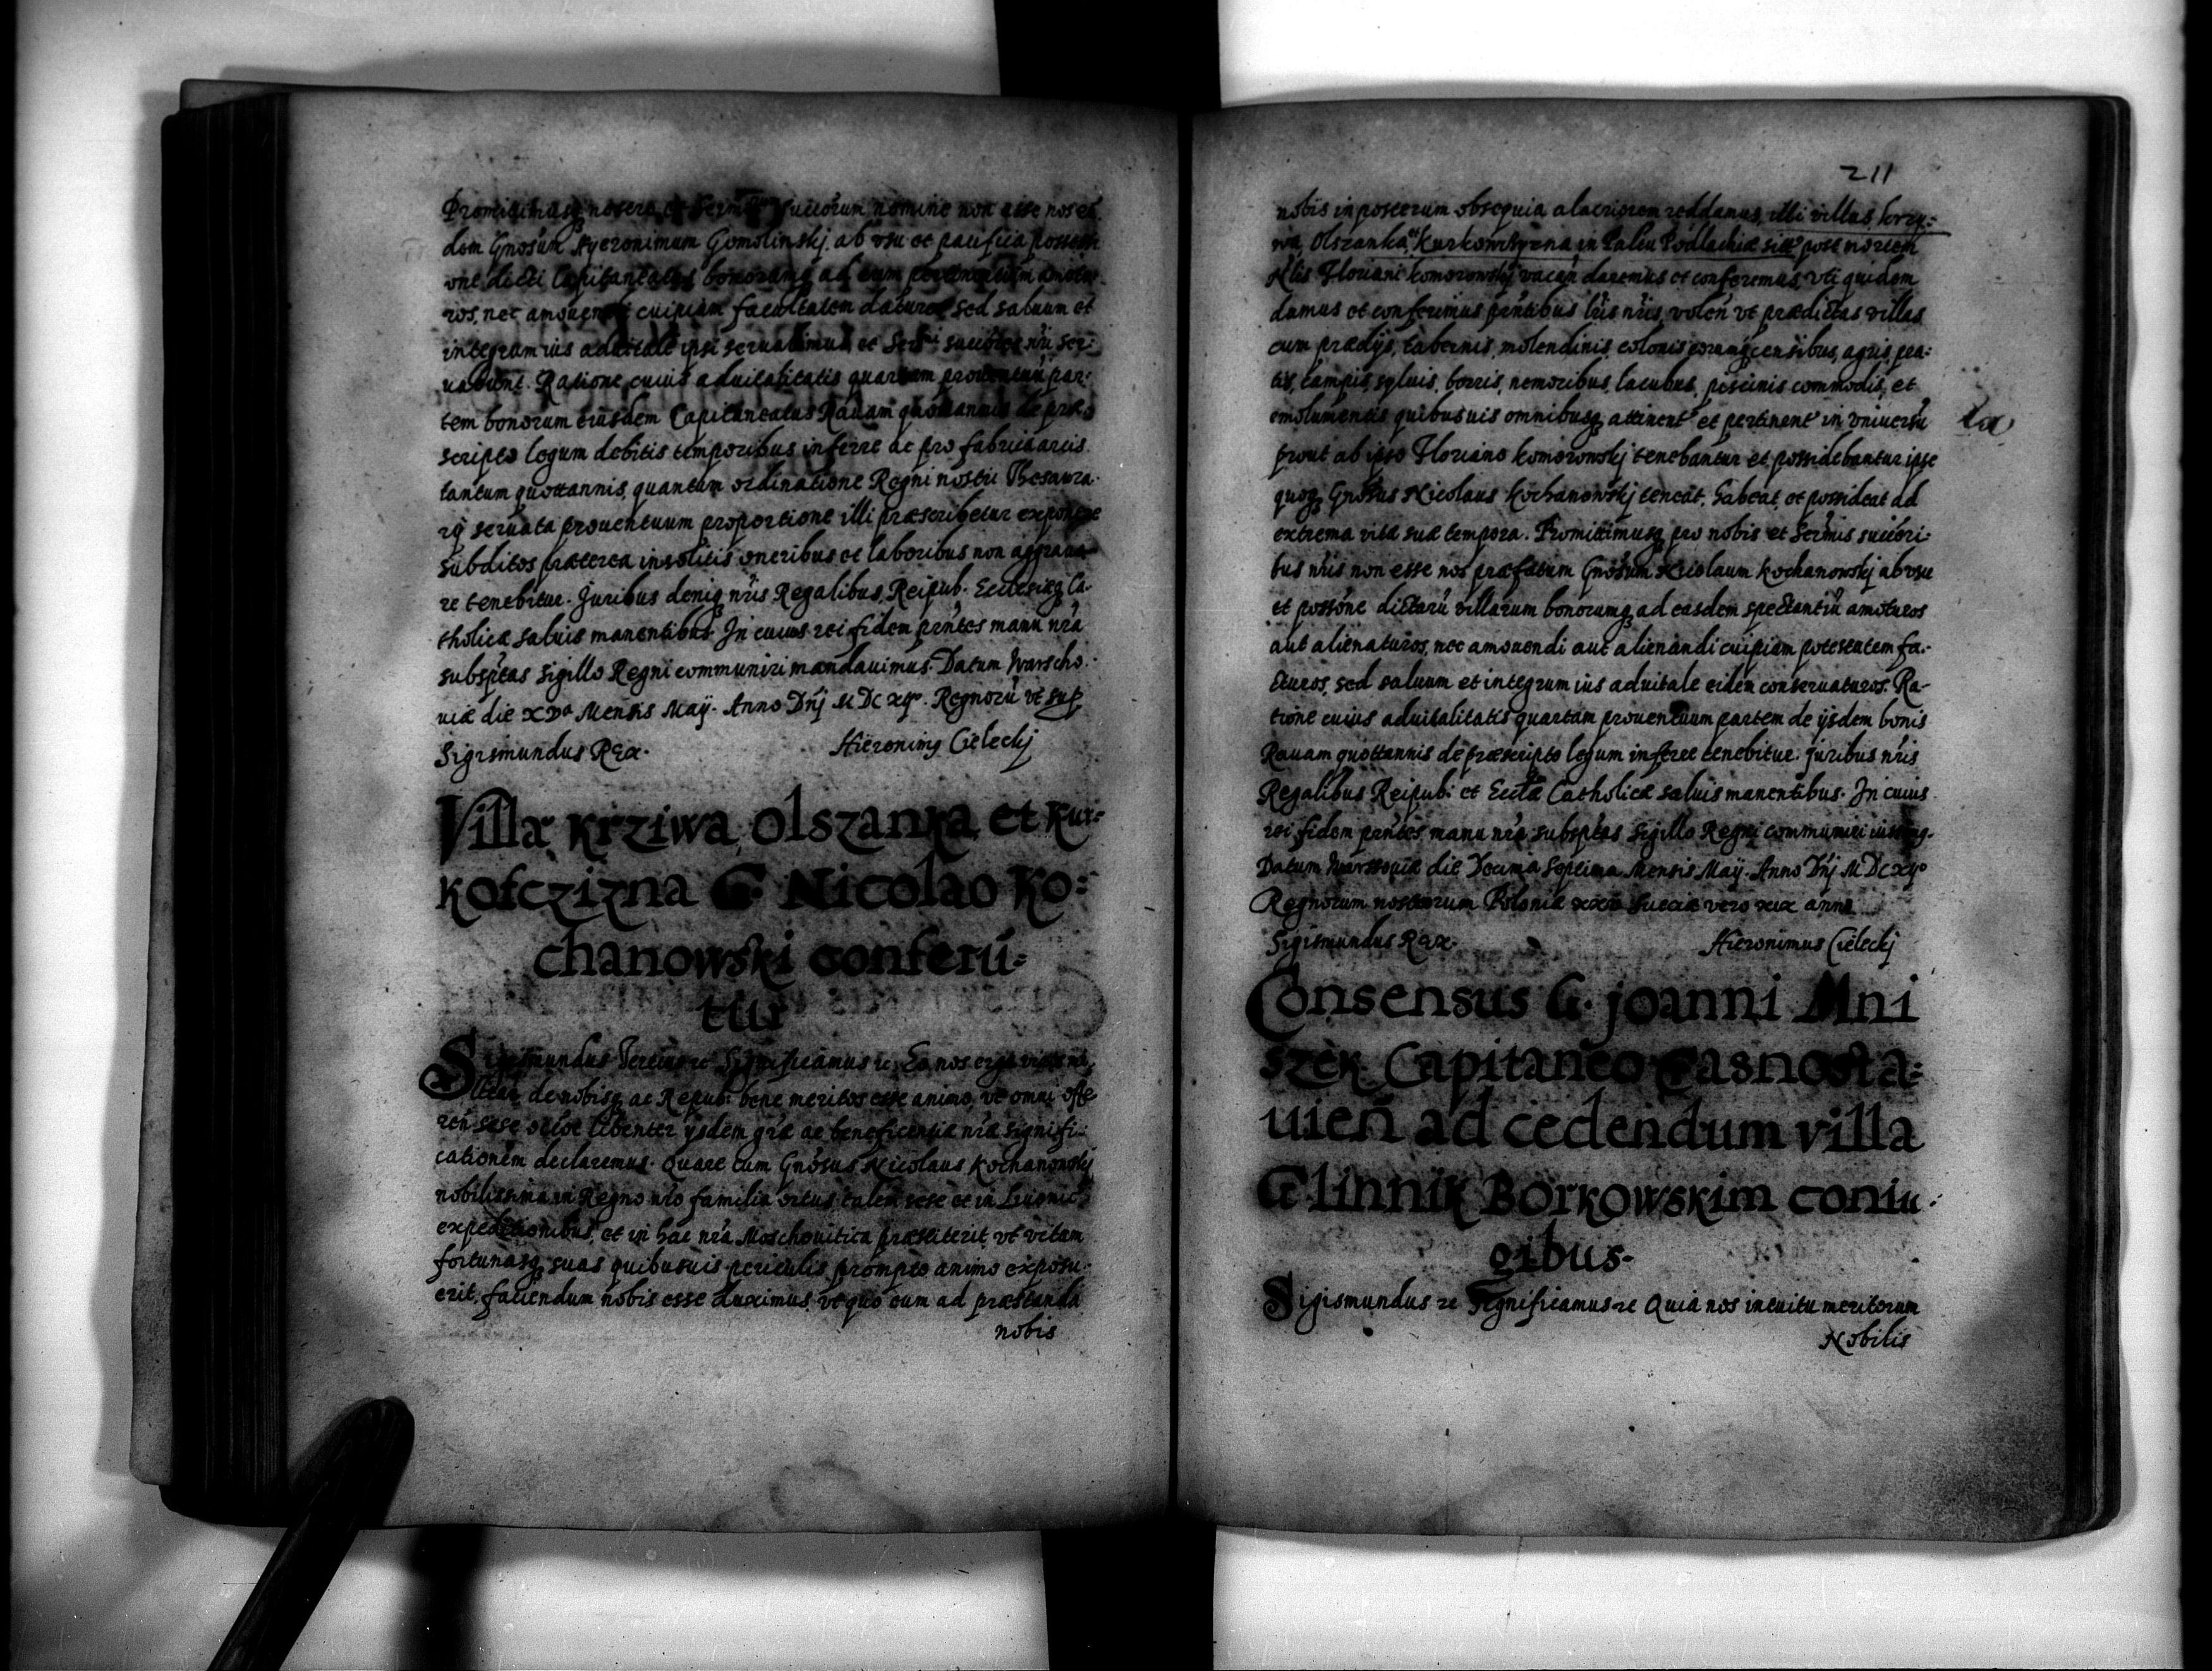 Promittimusq nostro et Serm̃ Succorum nomine non esse nos eũ
dem Gnosum Hyeronimum Gomolinskj, ab vsu et pacifica possessi
one dicti Capitaneatus bonorumq ad eum pertinentium amotu
ros, nec amouendi cuipiam facultatem daturos sed saluum et
integrum ius aduitale ipsi seruaturos et Sermi succores nr̃i ser:
uabunt. Ratione cuius aduitalitatis quartam prouentuũ par:
tem bonorum eiusdem Capitaneatus Rauam quottannis de præ
scripto legum debitis temporibus inferre ac pro fabrica arcis
tantum quottannis, quantum ordinatione Regni nostri Thesaura.
rij seruata prouentuum proportione illi præscribetur exponere
subditos præterea insolitis oneribus et laboribus non aggraua
re tenebitur. Juribus deniq nr̃is Regalibus, Reipub. Ecclesiæq Ca.
tholicæ saluis manentibus. In cuius rei fidem pr̃ntes manu nr̃a
subsp̃tas sigillo Regni communiri mandauimus. Datum Warscho.
uiæ die XVa Mensis Maÿ. Anno Dñj M Dc xijo. Regnorũ vt sup̃
Sigismundus Rex. Hieronimq Cieleckj
Villæ Krziwa, Olszanka, et Kur:
kofczizna G. Nicolao Ko:
chanowski conferũ:
tur
Sigismundus Tercius rc Significamus rc Eo nos erga
de nobisq ac Repub: bene meritos esse animo, vt omni offe
ren sese occ̃oe libenter ysdem gr̃æ ac beneficentiæ nr̃æ signifi:
cationem declaremus. Quare cum Gnosus Nicolaus Kochanowskj
nobilissima in Regno nr̃o familia ortus talem sese et in Liuonicis
expeditionibus, et in hac nr̃a Moschouitica præstiterit, vt vitam
fortunasq suas quibusuis periculis prompto animo exposu.
erit, faciendum nobis esse duximus, vt quo eum ad præstanda
nobis
211
nobis in posterum obsequia alacriorem reddamus, illi villas krzy:
wa, Olszanka, et Kurkowsyzna in Palu Podlachiæ sitt̃ post mortem
Nlis Floriani Komorowskj vacan̄ daremus et conferemus, vti quidem
damus et conferimus pr̃ntibus lr̃is nr̃is, volen̄ vt prædictas villas
cum prædijs, tabernis, molendinis, colonis eorumq censibus, agris, pra:
tis, campis, syluis, borris, nemoribus, lacubus, piscinis commodis, et
emolumentis quibusuis omnibusq attinent̃ et pertinent̃ in vniuersũ
prout ab ipso Floriano Komorowskj tenebantur et possidebantur ipse
quoq Gnosus Nicolaus Kochanowskj teneat, habeat, et possideat ad
extrema vitæ suæ tempora. Promittimusq pro nobis et Serm̃is succori:
bus nr̃is non esse nos præfatum Gnosum Nicolaum Kochanowskj ab vsu
et possone dictarũ villarum bonorumq ad easdem spectantiũ amoturos
aut alienaturos, nec amouendi aut alienandi cuipiam potestatem fa.
cturos, sed saluum et integrum ius aduitale eidem conseruaturos. Ra-
tione cuius aduitalitatis quartam prouentuum partem de ysdem bonis
Rauam quottannis de præscripto legum inferre tenebitur. Juribus nr̃is
Regalibus Reipub: et Eccl̃æ Catholicæ saluis manentibus. In cuius
rei fidem pr̃ntes manu nr̃a subsp̃tas sigillo Regni communiri iussimq.
Datum Warssouiæ die Decima Septima Mensis Maÿ. Anno Dñj M Dc xijo
Regnorum nostrorum Poloniæ xxv Sueciæ vero xix anno
Sigismundus Rex. Hieronimus Cieleckj
Consensus G. Joanni Mni
szek Capitaneo Casnosta:
uien̄ ad cedendum villa
Glinnik Borkowskim coniu.
gibus.
Sigismundus rc Significamus rc Quia nos intuitu meritorum
Nobilis